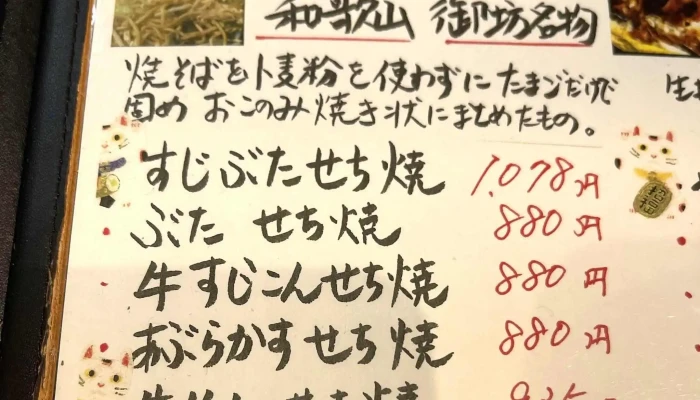 和歌山 御坊名物
焼そばを小麦粉を使わずにたまごだけで
固め おこのみ焼き状にまとめたもの。
すじぶたせち焼 1,078円
ぶた せち焼 880円
牛すじこんせち焼 880円
あぶらかすせち焼 880円